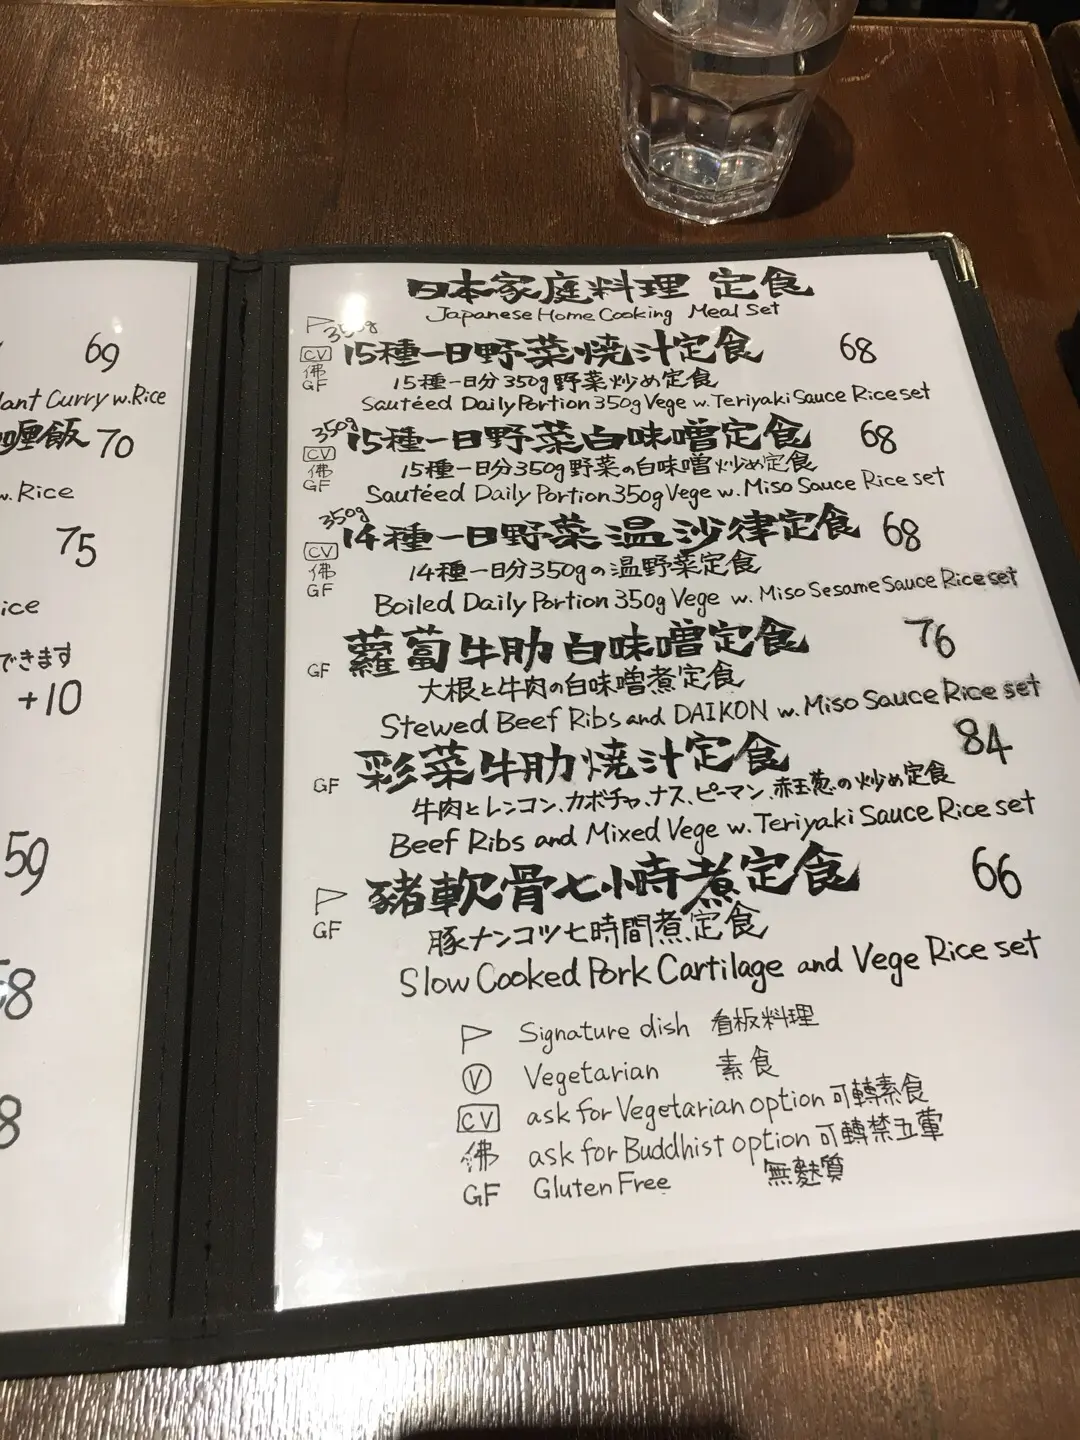 69
lant Curry w. Rice
喱飯 70
w. Rice
75
ice
できます
+10
59
58
8
日本家庭料理 定食
Japanese Home Cooking Meal Set
350g
CV
佛
GF
15種一日野菜燒汁定食 68
15種一日分350g野菜炒め定食
Sautéed Daily Portion 350g Vege w. Teriyaki Sauce Rice set
350g
CV
佛
GF
15種一日野菜白味噌定食 68
15種一日分350g野菜の白味噌炒め定食
Sautéed Daily Portion 350g Vege w. Miso Sauce Rice set
350g
CV
佛
GF
14種一日野菜温沙律定食 68
14種一日分350gの温野菜定食
Boiled Daily Portion 350g Vege w. Miso Sesame Sauce Rice set
GF
蘿蔔牛肋白味噌定食 76
大根と牛肉の白味噌煮定食
Stewed Beef Ribs and DAIKON w. Miso Sauce Rice set
GF
彩菜牛肋燒汁定食 84
牛肉とレンコン、カボチャ、ナス、ピーマン、赤玉葱の炒め定食
Beef Ribs and Mixed Vege w. Teriyaki Sauce Rice set
GF
豬軟骨七小時煮定食 66
豚ナンコツ七時間煮定食
Slow Cooked Pork Cartilage and Vege Rice set
Signature dish 看板料理
V Vegetarian 素食
CV ask for Vegetarian option 可轉素食
佛 ask for Buddhist option 可轉禁五葷
GF Gluten Free 無麩質